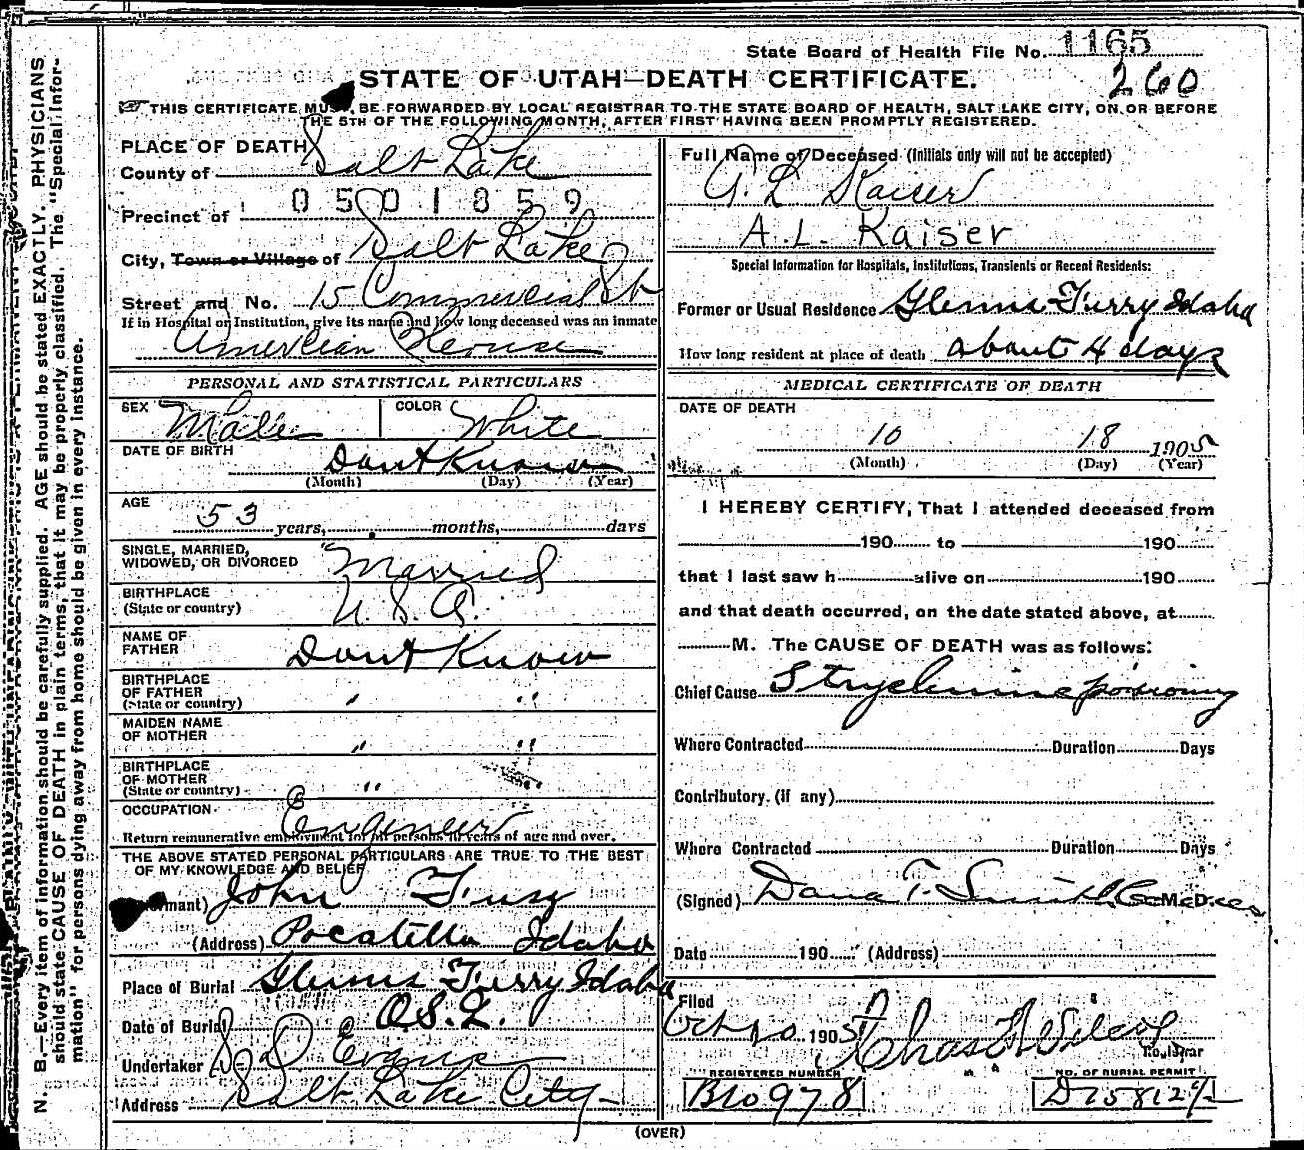 State Board of Health File No. 1165
260
STATE OF UTAH—DEATH CERTIFICATE.
THIS CERTIFICATE MUST BE FORWARDED BY LOCAL REGISTRAR TO THE STATE BOARD OF HEALTH, SALT LAKE CITY, ON OR BEFORE
THE 5TH OF THE FOLLOWING MONTH, AFTER FIRST HAVING BEEN PROMPTLY REGISTERED.
N. B.—Every item of information should be carefully supplied. AGE should be stated EXACTLY. PHYSICIANS
should state CAUSE OF DEATH in plain terms, that it may be properly classified. The "Special Infor-
mation" for persons dying away from home should be given in every instance.
PLACE OF DEATH
County of Salt Lake
0501859
Precinct of
City, Town or Village of Salt Lake
Street and No. 15 Commercial St
If in Hospital or Institution, give its name and how long deceased was an inmate
American House
PERSONAL AND STATISTICAL PARTICULARS
SEX Male COLOR White
DATE OF BIRTH Dont Know
(Month) (Day) (Year)
AGE
53 years, months, days
SINGLE, MARRIED,
WIDOWED, OR DIVORCED Married
BIRTHPLACE
(State or country) U. S. A.
NAME OF
FATHER Dont Know
BIRTHPLACE
OF FATHER
(State or country) " "
MAIDEN NAME
OF MOTHER " "
BIRTHPLACE
OF MOTHER
(State or country) " "
OCCUPATION Engineer
Return remunerative employment for all persons 10 years of age and over.
THE ABOVE STATED PERSONAL PARTICULARS ARE TRUE TO THE BEST
OF MY KNOWLEDGE AND BELIEF
mant) John
(Address) Pocatello Idaho
Place of Burial Glenns Furry Idaho
Date of Burial O.S.L.
Undertaker Evans
Address Salt Lake City
Full Name of Deceased (Initials only will not be accepted)
A L Kaiser
A. L. Kaiser
Special Information for Hospitals, Institutions, Transients or Recent Residents:
Former or Usual Residence Glenns Furry Idaho
How long resident at place of death about 4 days
MEDICAL CERTIFICATE OF DEATH
DATE OF DEATH
10 18 1905
(Month) (Day) (Year)
I HEREBY CERTIFY, That I attended deceased from
190 to 190
that I last saw h alive on 190
and that death occurred, on the date stated above, at
M. The CAUSE OF DEATH was as follows:
Chief Cause Strychnine poisoning
Where Contracted Duration Days
Contributory. (if any)
Where Contracted Duration Days
(Signed) Dana T. Smith M.D.
Date 190 (Address)
Filed
Oct 20 1905 Chas
Registrar
REGISTERED NUMBER
B10978
NO. OF BURIAL PERMIT
(OVER)